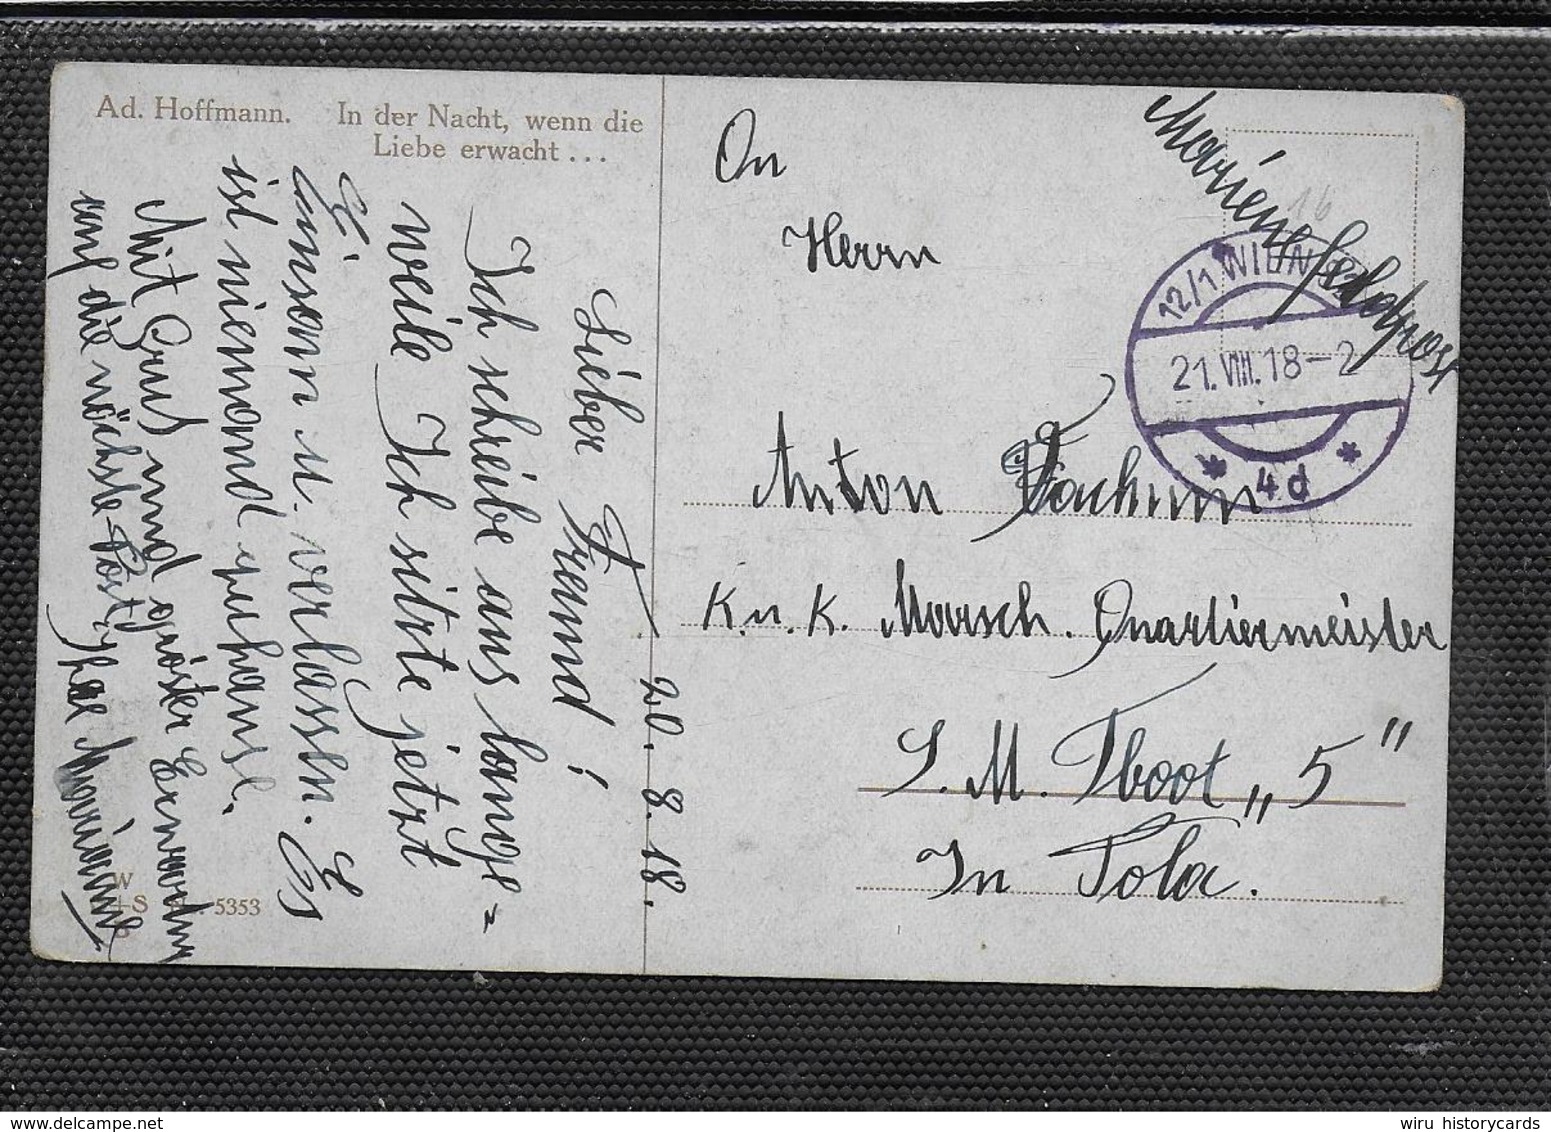 Ad. Hoffmann. In der Nacht, wenn die
Liebe erwacht...
20. 8. 18.
Lieber Freund!
Ich schreibe aus lange=
weile Ich sitzte jetzt
Einsam u. verlassen. Es
ist niemand zuhause.
Mit Grus und gröster Erwartung
auf die nächste Post, Ihre Marianne
W
+S 5353
An
Herrn
Marine feldpost
16
12/1 WIEN
21. VIII. 18-2
* 4d *
Anton
K. u. K. Marsch. Quartiermeister
S. M. Tboot „5"
In Pola.
wiru historycards